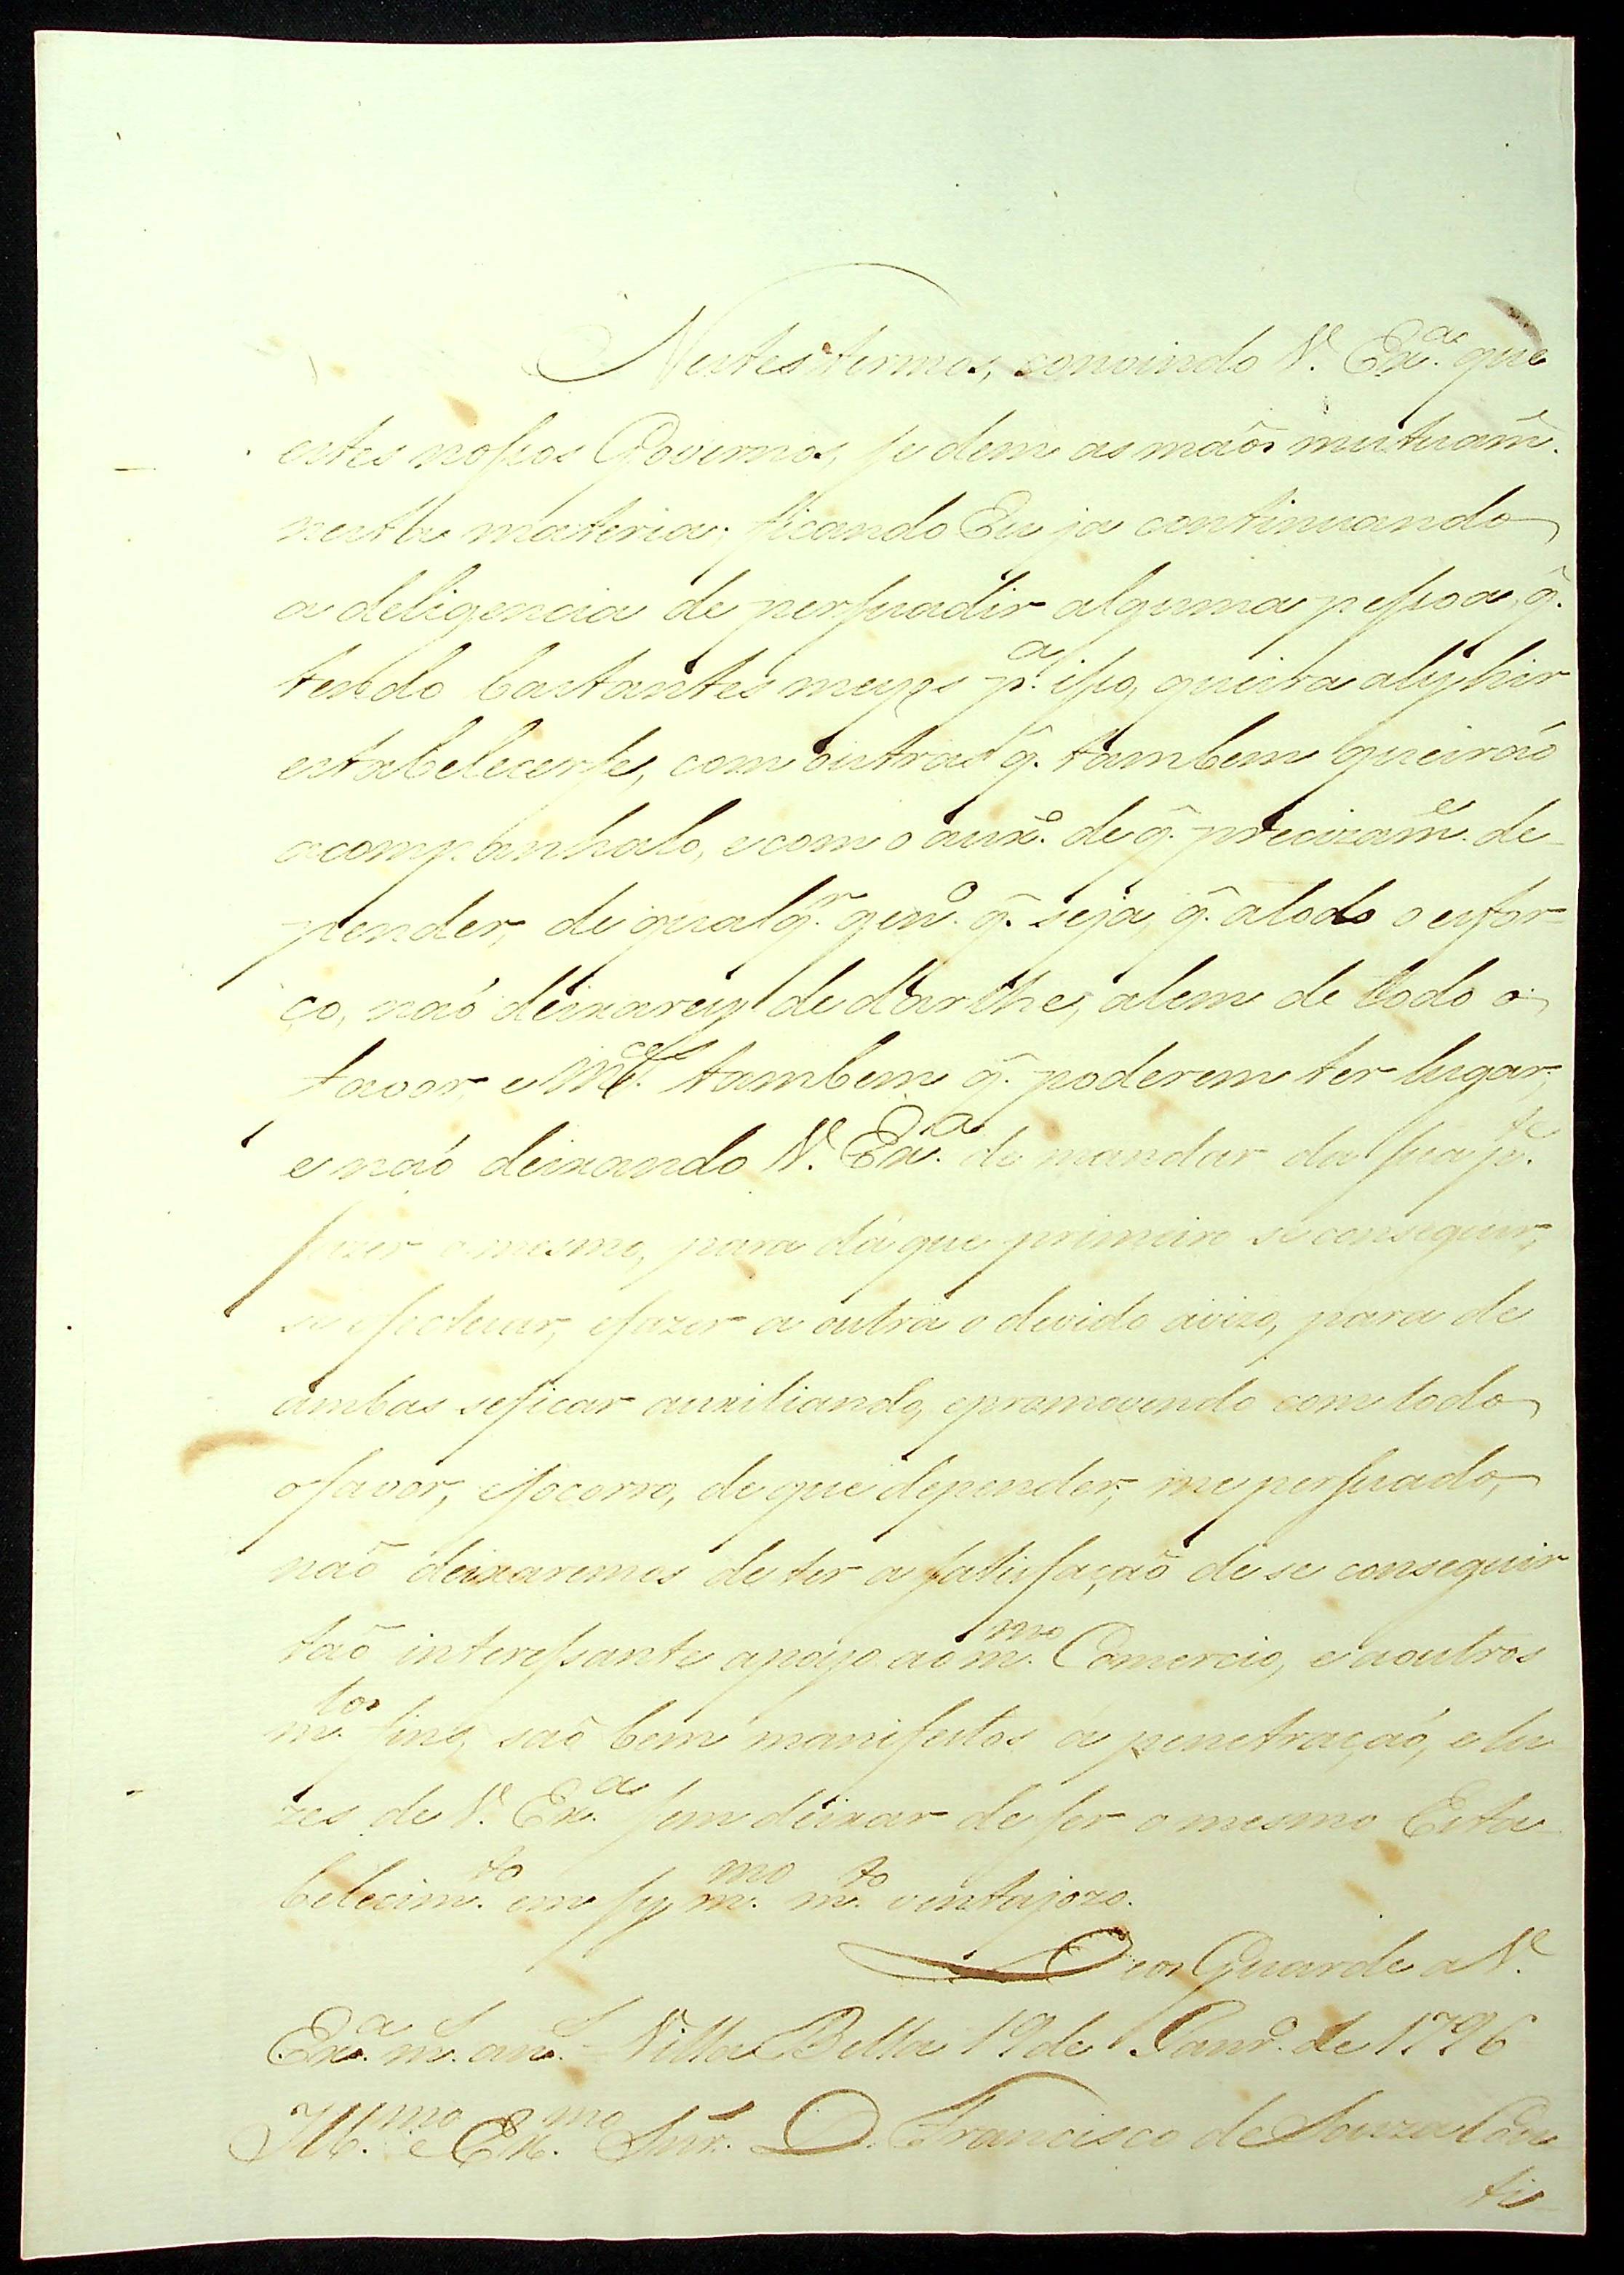 Nestes termos, convindo V. Ex.ª que
estes nossos Governos, se dem as maõs mutuam.e
nesta materia, ficando Eu ja continuando
a deligencia de persuadir alguma pessoa, q̃.
tendo bastantes meyos p.ª isso, queira aly hir
estabelecerse, com outras q̃. tambem queiraõ
acompanhalo, e com o aux.º de q̃. precizam.e de-
pender, de qualq.r gen.º q̃. seja, q̃. a todo o esfor-
ço, naõ deixarey de darlhe, alem de todo o
favor e M.ces tambem q̃. poderem ter lugar;
e naõ deixando V. Ex.ª de mandar da sua p.te
fazer o mesmo, para dá que primeiro se conseguir,
se efectuar, e fazer a outra o devido avizo, para de
ambas se ficar auxiliando, e promovendo com todo
o favor, e socorro, de que depender, me persuado,
naõ deixaremos de ter a satisfaçaõ de se conseguir
taõ interessante apoyo ao m.mo Comercio, e a outros
m.tos fins, saõ bem manifestos á penetraçaõ, e lu
zes de V. Ex.ª sem deixar de ser o mesmo Esta-
belecim.to em sy m.mo m.to ventajozo.
Deos Guarde a V.
Ex.ª m.s an.s Villa Bella 19 de Janr.º de 1796
Ill.mo e Ex.mo Snr. D. Francisco de Souza Cou
ti